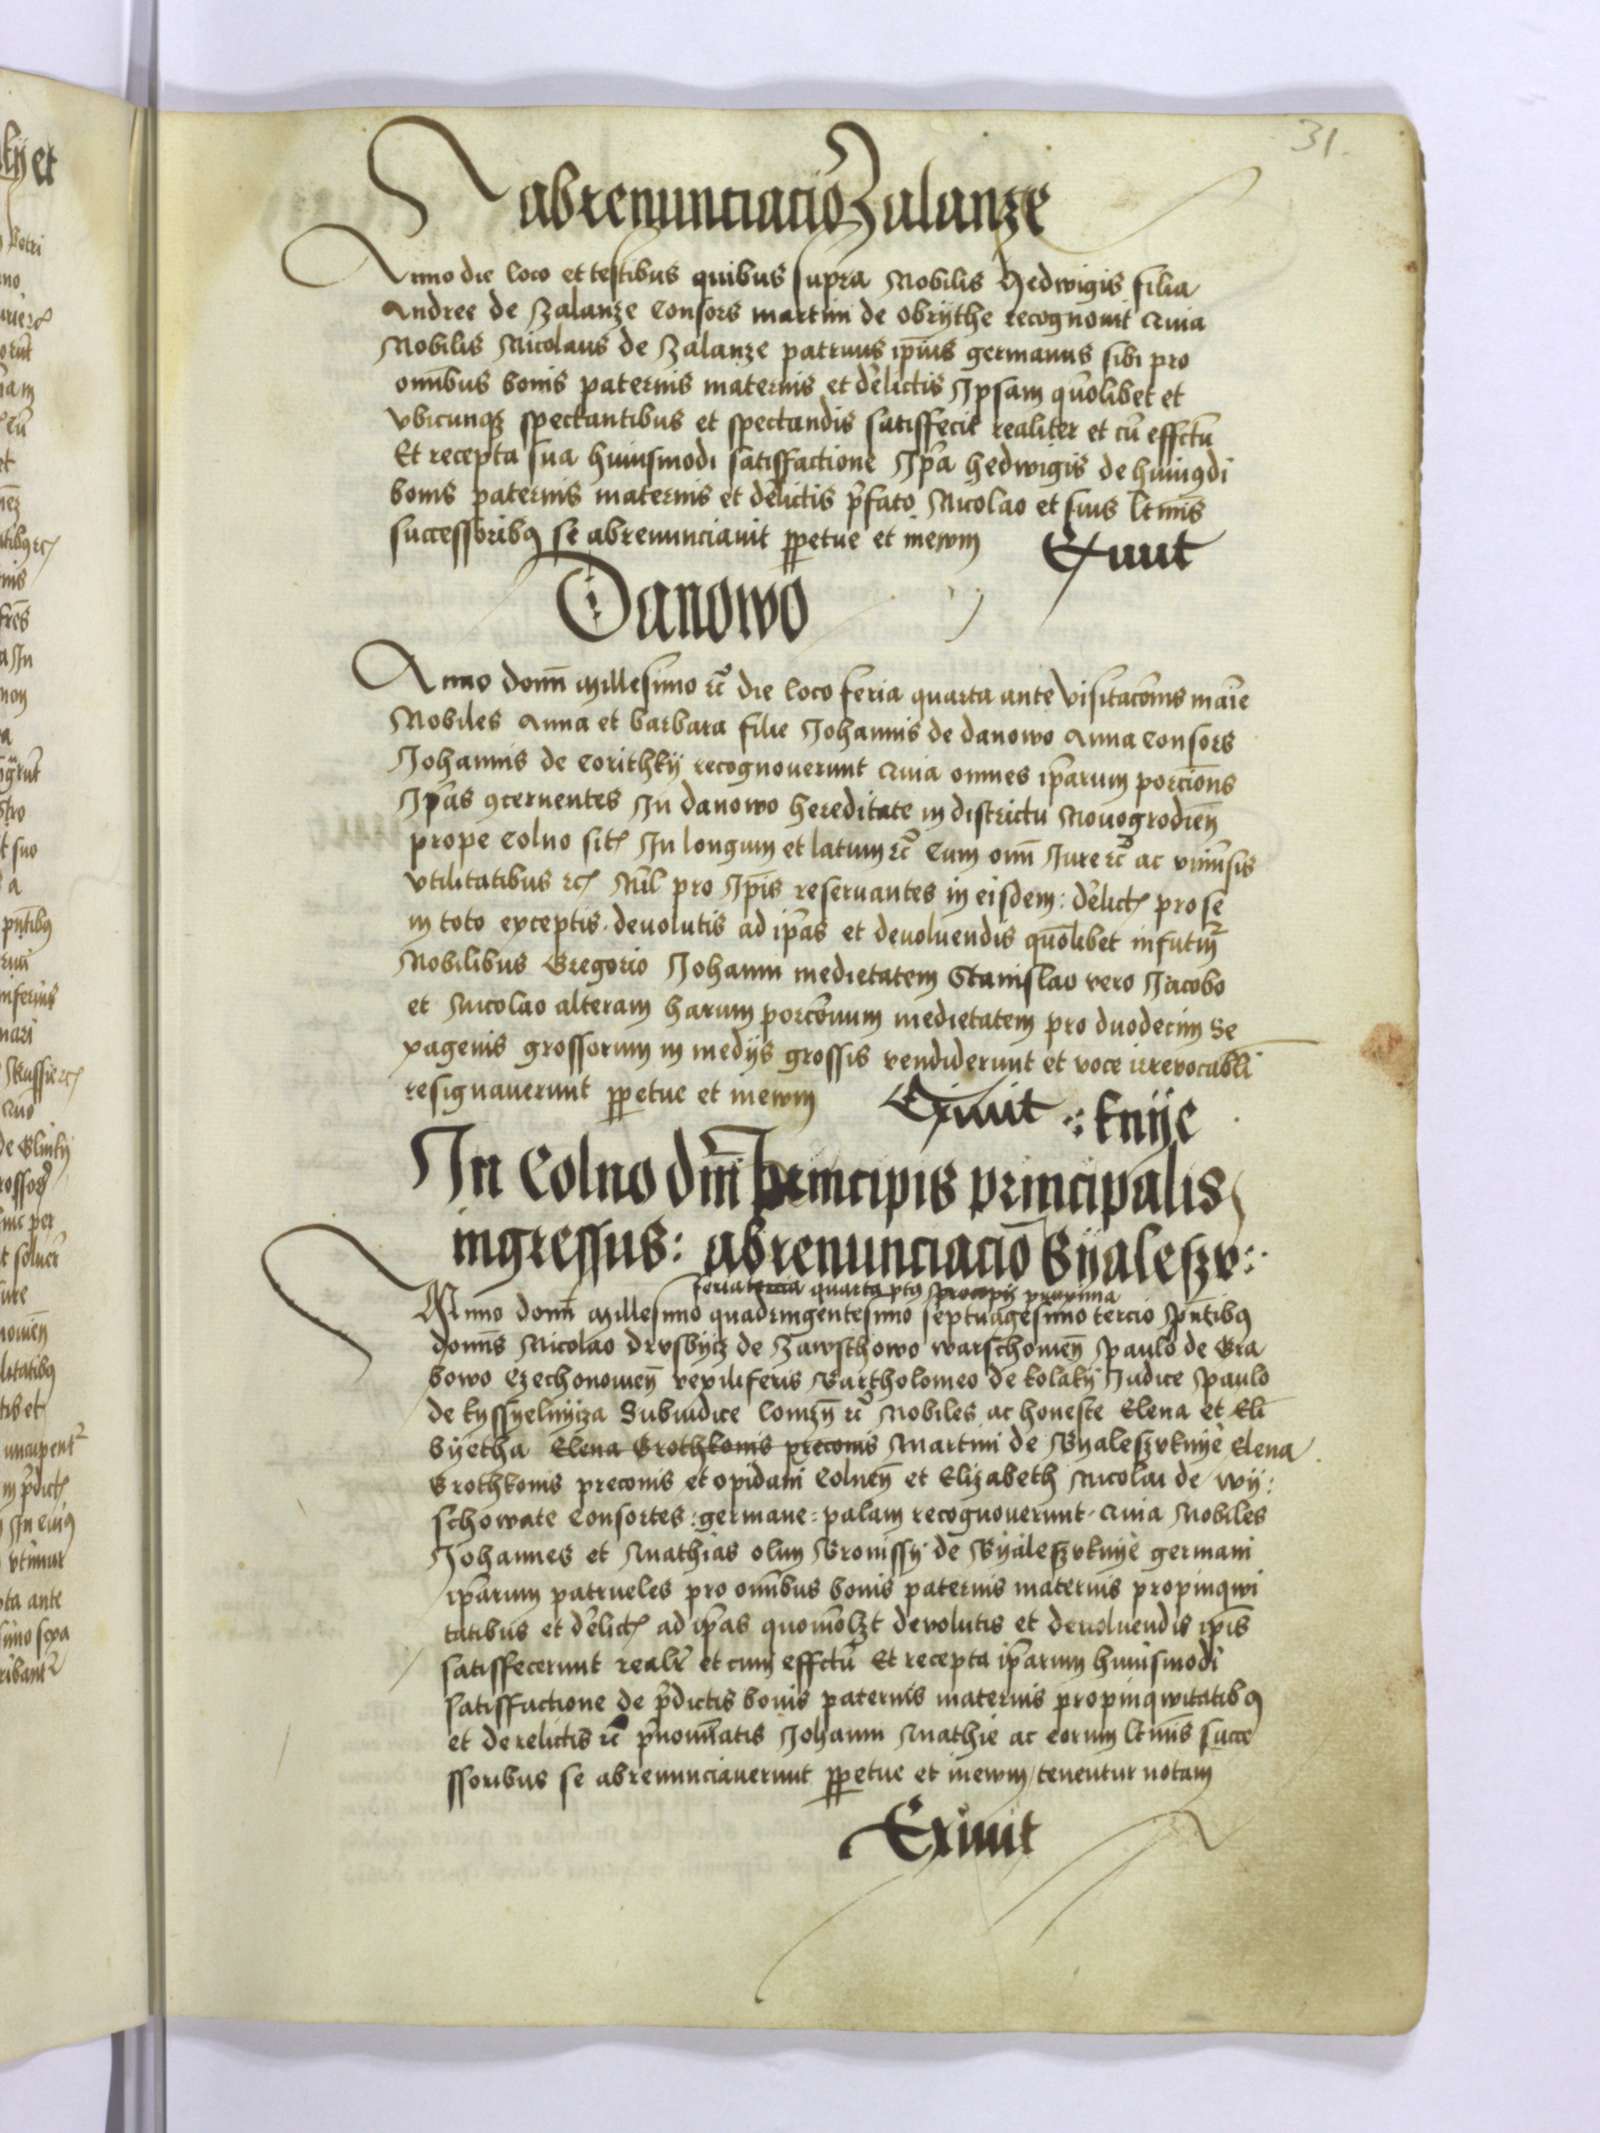 31.
abrenunciacio Zalanze
Anno die loco et testibus quibus supra Nobilis Hedwigis filia
Andree de Zalanze Consors martini de obrythe recognouit Quia
Nobilis Nicolaus de Zalanze patruus ip̄ius germanus sibi pro
om̄ibus bonis paternis maternis et d'elictis Ipsam qu̅olibet et
vbicunqꝫ spectantibus et spectandis satisfecit realiter et cū effctu
Et recepta sua huiusmodi satisfactione Ip̄a hedwigis de huiusꝯdi
bonis paternis maternis et d'elictis p̄fato Nicolao et suis ltimis
successoribꝯ se abrenunciauit ꝑpetue et inewm
Exiuit
Danowo
Anno domī Millesimo rc̄ die loco feria quarta ante visitacōnis marie
Nobiles Anna et barbara filie Johannis de danowo Anna Consors
Johannis de Corithky recognouerunt Quia omnes ip̄arum porciōns
Ip̄as ꝯcernentes In danowo hereditate in districtu Nouogrodieñ
prope Colno sitꝭ In longum et latum rc̄ Cum omī Iure rc̄ ac vniu̅sis
vtilitatibus rcꝭ Nil pro Ip̄is reseruantes in eisdem: d'elictꝭ pro se
in toto exceptis. deuolutis ad ip̄as et deuoluendis qu̅olibet in futur̄
Nobilibus Gregorio Johanni medietatem Stanislao vero Jacobo
et Nicolao alteram harum porcōnum medietatem pro duodecim Se
xagenis grossorum in medijs grossis vendiderunt et voce irreuocabl̄i
resignauerunt ꝑpetue et inewm
Exiuit
: knÿe
In Colno dm̄ principis principalis
ingressus: abrenunciacio Byaleszv:
feria tercia quarta ptꝯ procopij proxima
Anno domī Millesimo quadringentesimo septuagesimo tercio p̄ntibꝯ
domīs Nicolao drvsbycz de Zawschowo warschouieñ paulo de Gra
bowo Czechonouieñ vexiliferis Bartholomeo de kolaky Iudice paulo
de kyssyelnycza Subiudice lomzn̄ rc̄ Nobiles ac honeste Elena et Eli
byetha Elena Grothkonis preconis Martini de Byaleszvknye Elena
Grothkonis preconis et opidani Colneñ et Elizabeth Nicolai de wy:
schowate Consortes: germane: palam recognouerunt. Quia Nobiles
Johannes et Mathias olim Bronissy de Byaleszvknye germani
ip̄arum patrueles pro om̄ibus bonis paternis maternis propinqwi
tatibus et d'elictꝭ ad ip̄as quomolꝫt deuolutis et deuoluendis ip̄is
satisfecerunt realr̄ et cum effctu Et recepta ip̄arum huiusmodi
satisfactione de p̄dictis bonis paternis maternis propinqwitatibꝯ
et derelictis rc̄ p̄nomīatis Johanni Mathie ac eorum ltimis succe
ssoribus se abrenunciauerunt ꝑpetue et inewm / tenentur notam
Exiuit